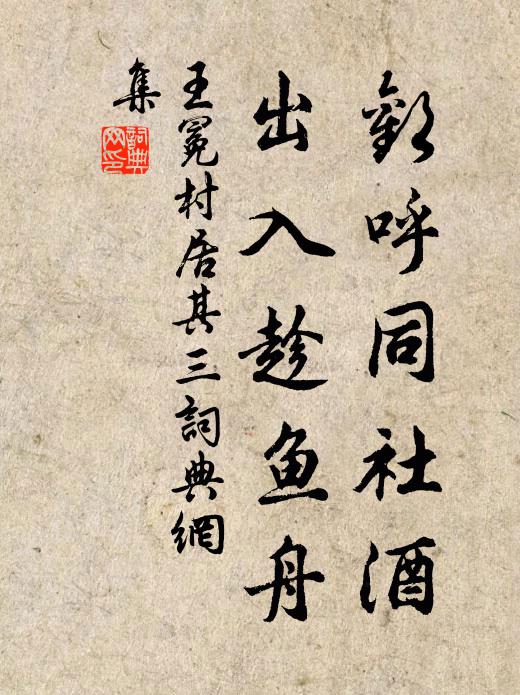 歡呼同社酒
出入趁鱼舟
王冕村居其三詞典網
集
詞典网印